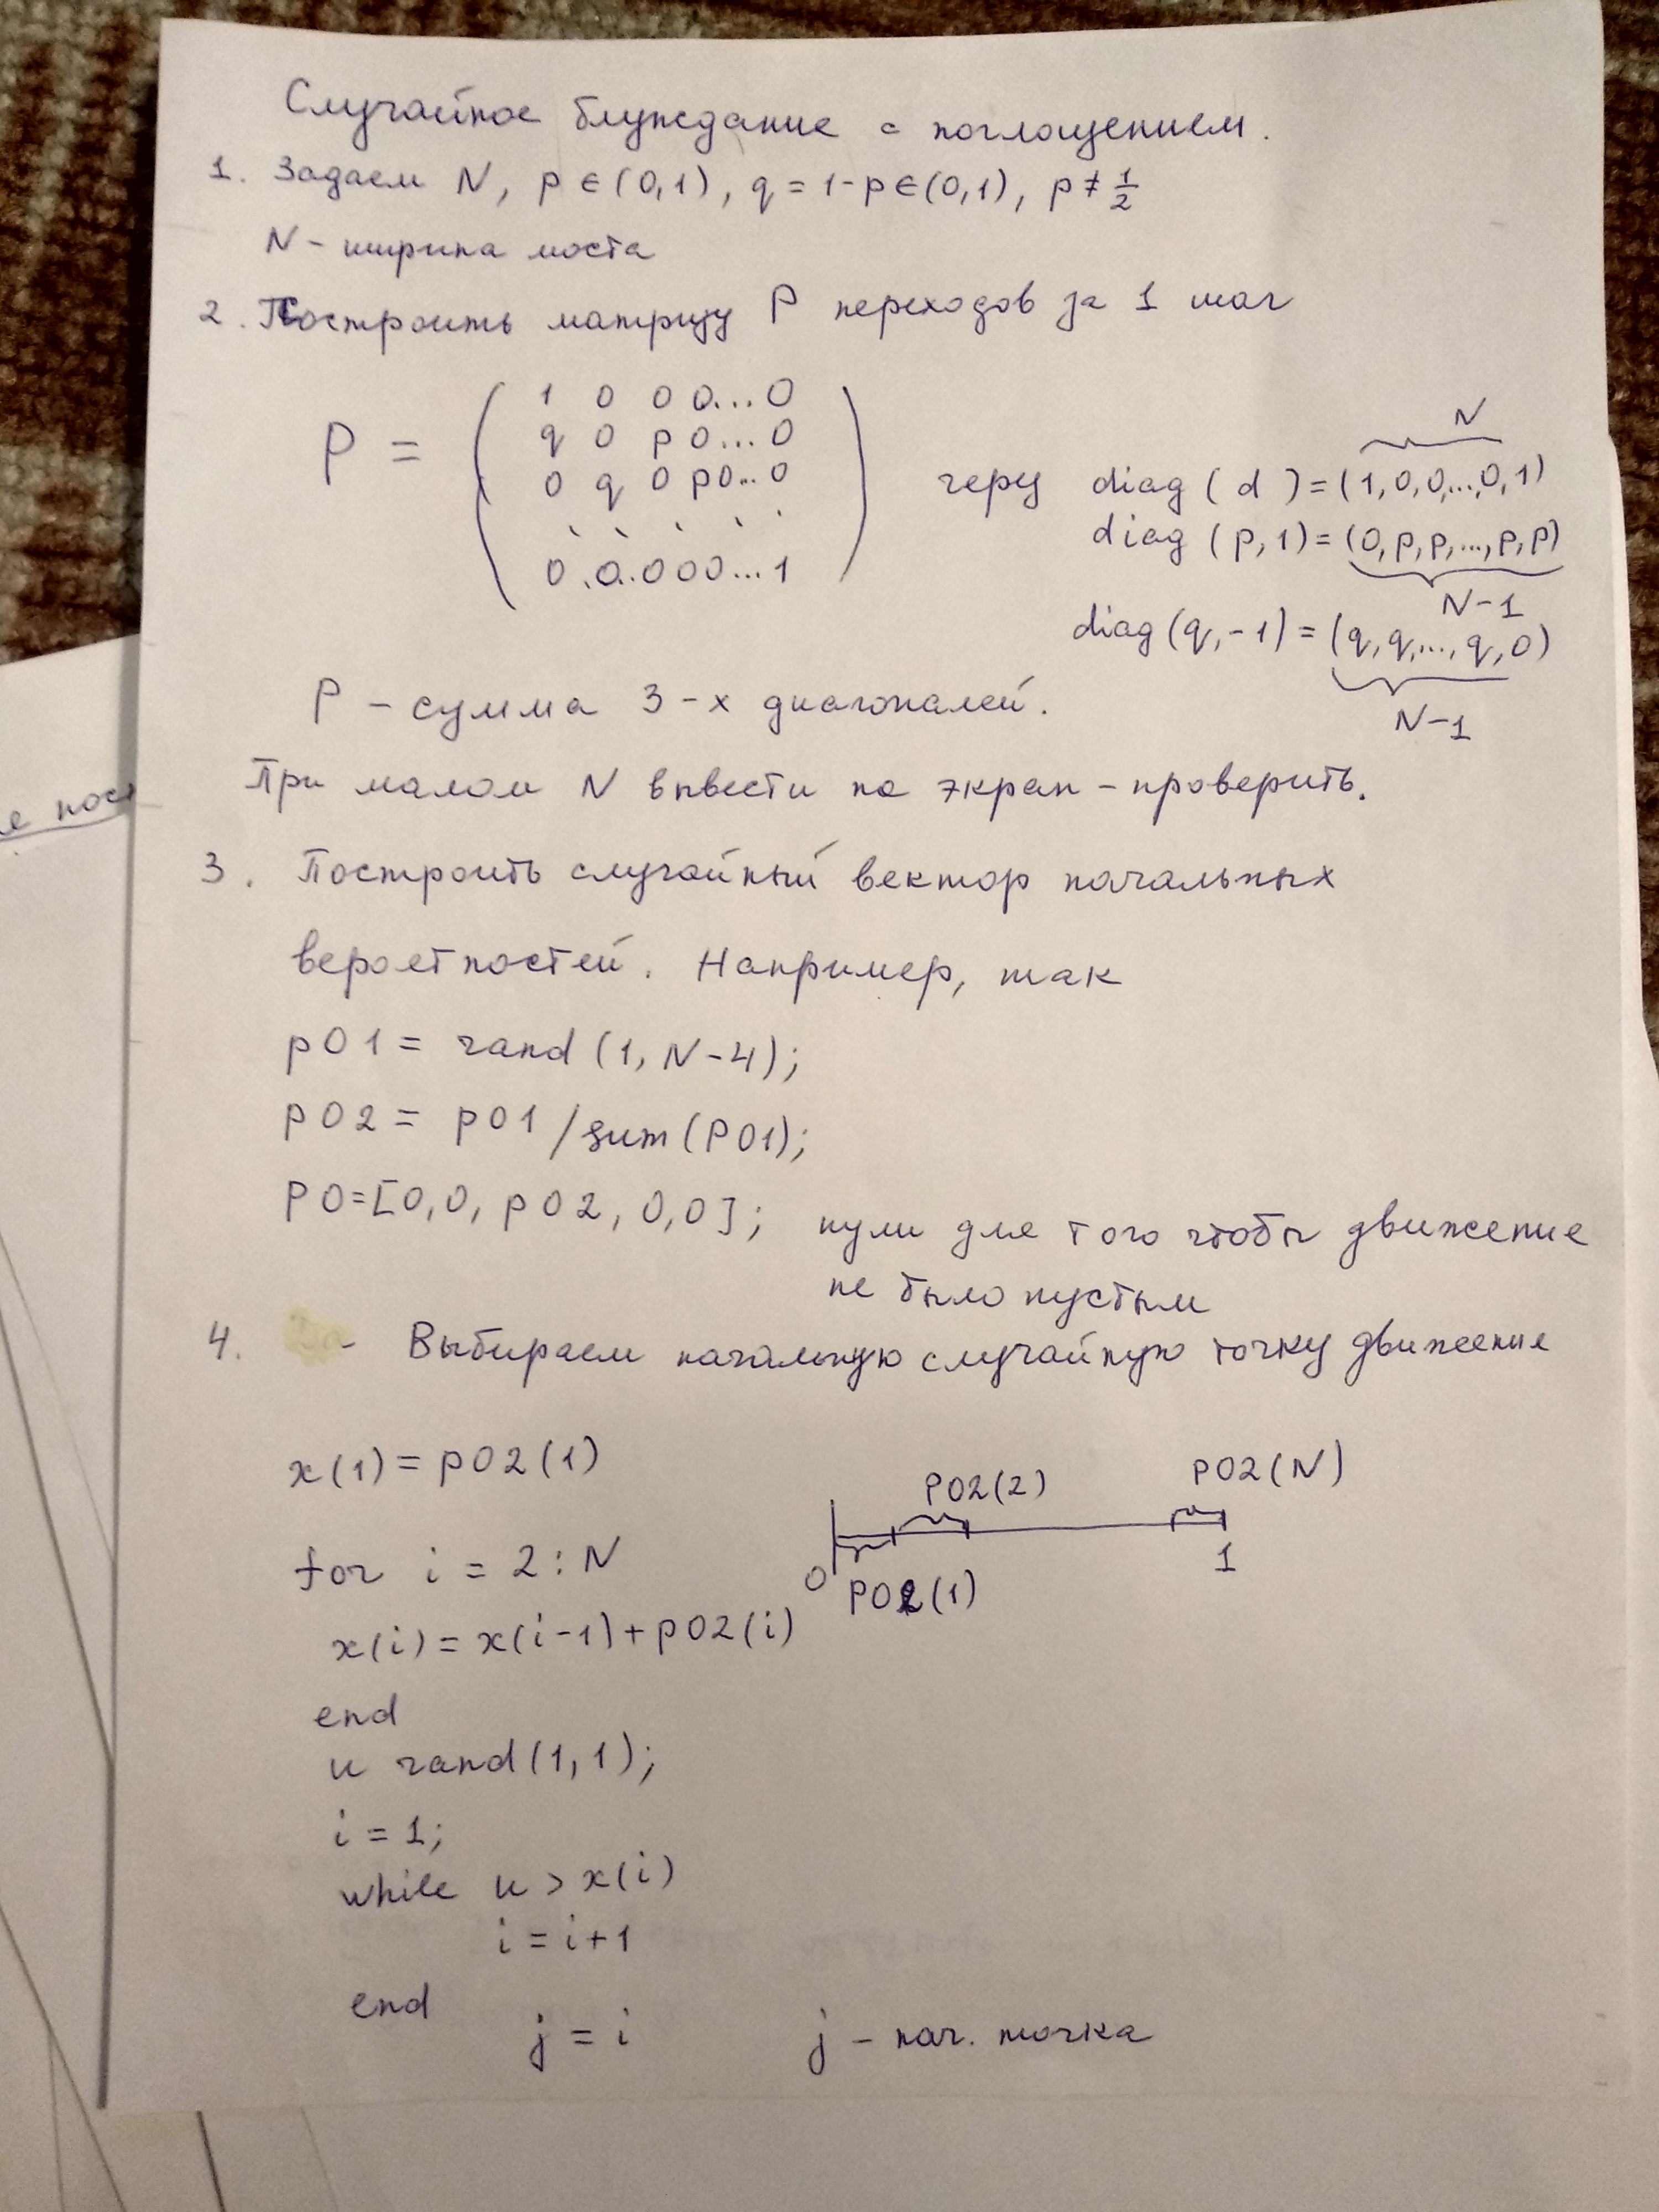 Случайное блуждание с поглощением.
1. Задаем N, p ∈ (0,1), q = 1-p ∈ (0,1), p ≠ 1/2
N - ширина моста
2. Построить матрицу P переходов за 1 шаг
P = ( 1 0 0 0...0
q 0 p 0...0
0 q 0 p 0...0
. . . . .
0.0.000...1 )
через diag (d) = (1,0,0,...,0,1) N
diag (p,1) = (0,p,p,...,p,p) N-1
diag (q,-1) = (q,q,...,q,0) N-1
P - сумма 3-х диагоналей.
При малом N вывести на экран - проверить.
3. Построить случайный вектор начальных
вероятностей. Например, так
p01 = rand (1, N-4);
p02 = p01 / sum(P01);
P0=[0,0, p02, 0,0]; нули для того чтобы движение
не было пустым
4. - Выбираем начальную случайную точку движение
x(1) = p02(1)
P02(2) P02(N)
0 1
P02(1)
for i = 2:N
x(i) = x(i-1)+p02(i)
end
u rand(1,1);
i = 1;
while u > x(i)
i = i+1
end
j = i j - нач. точка
е пос